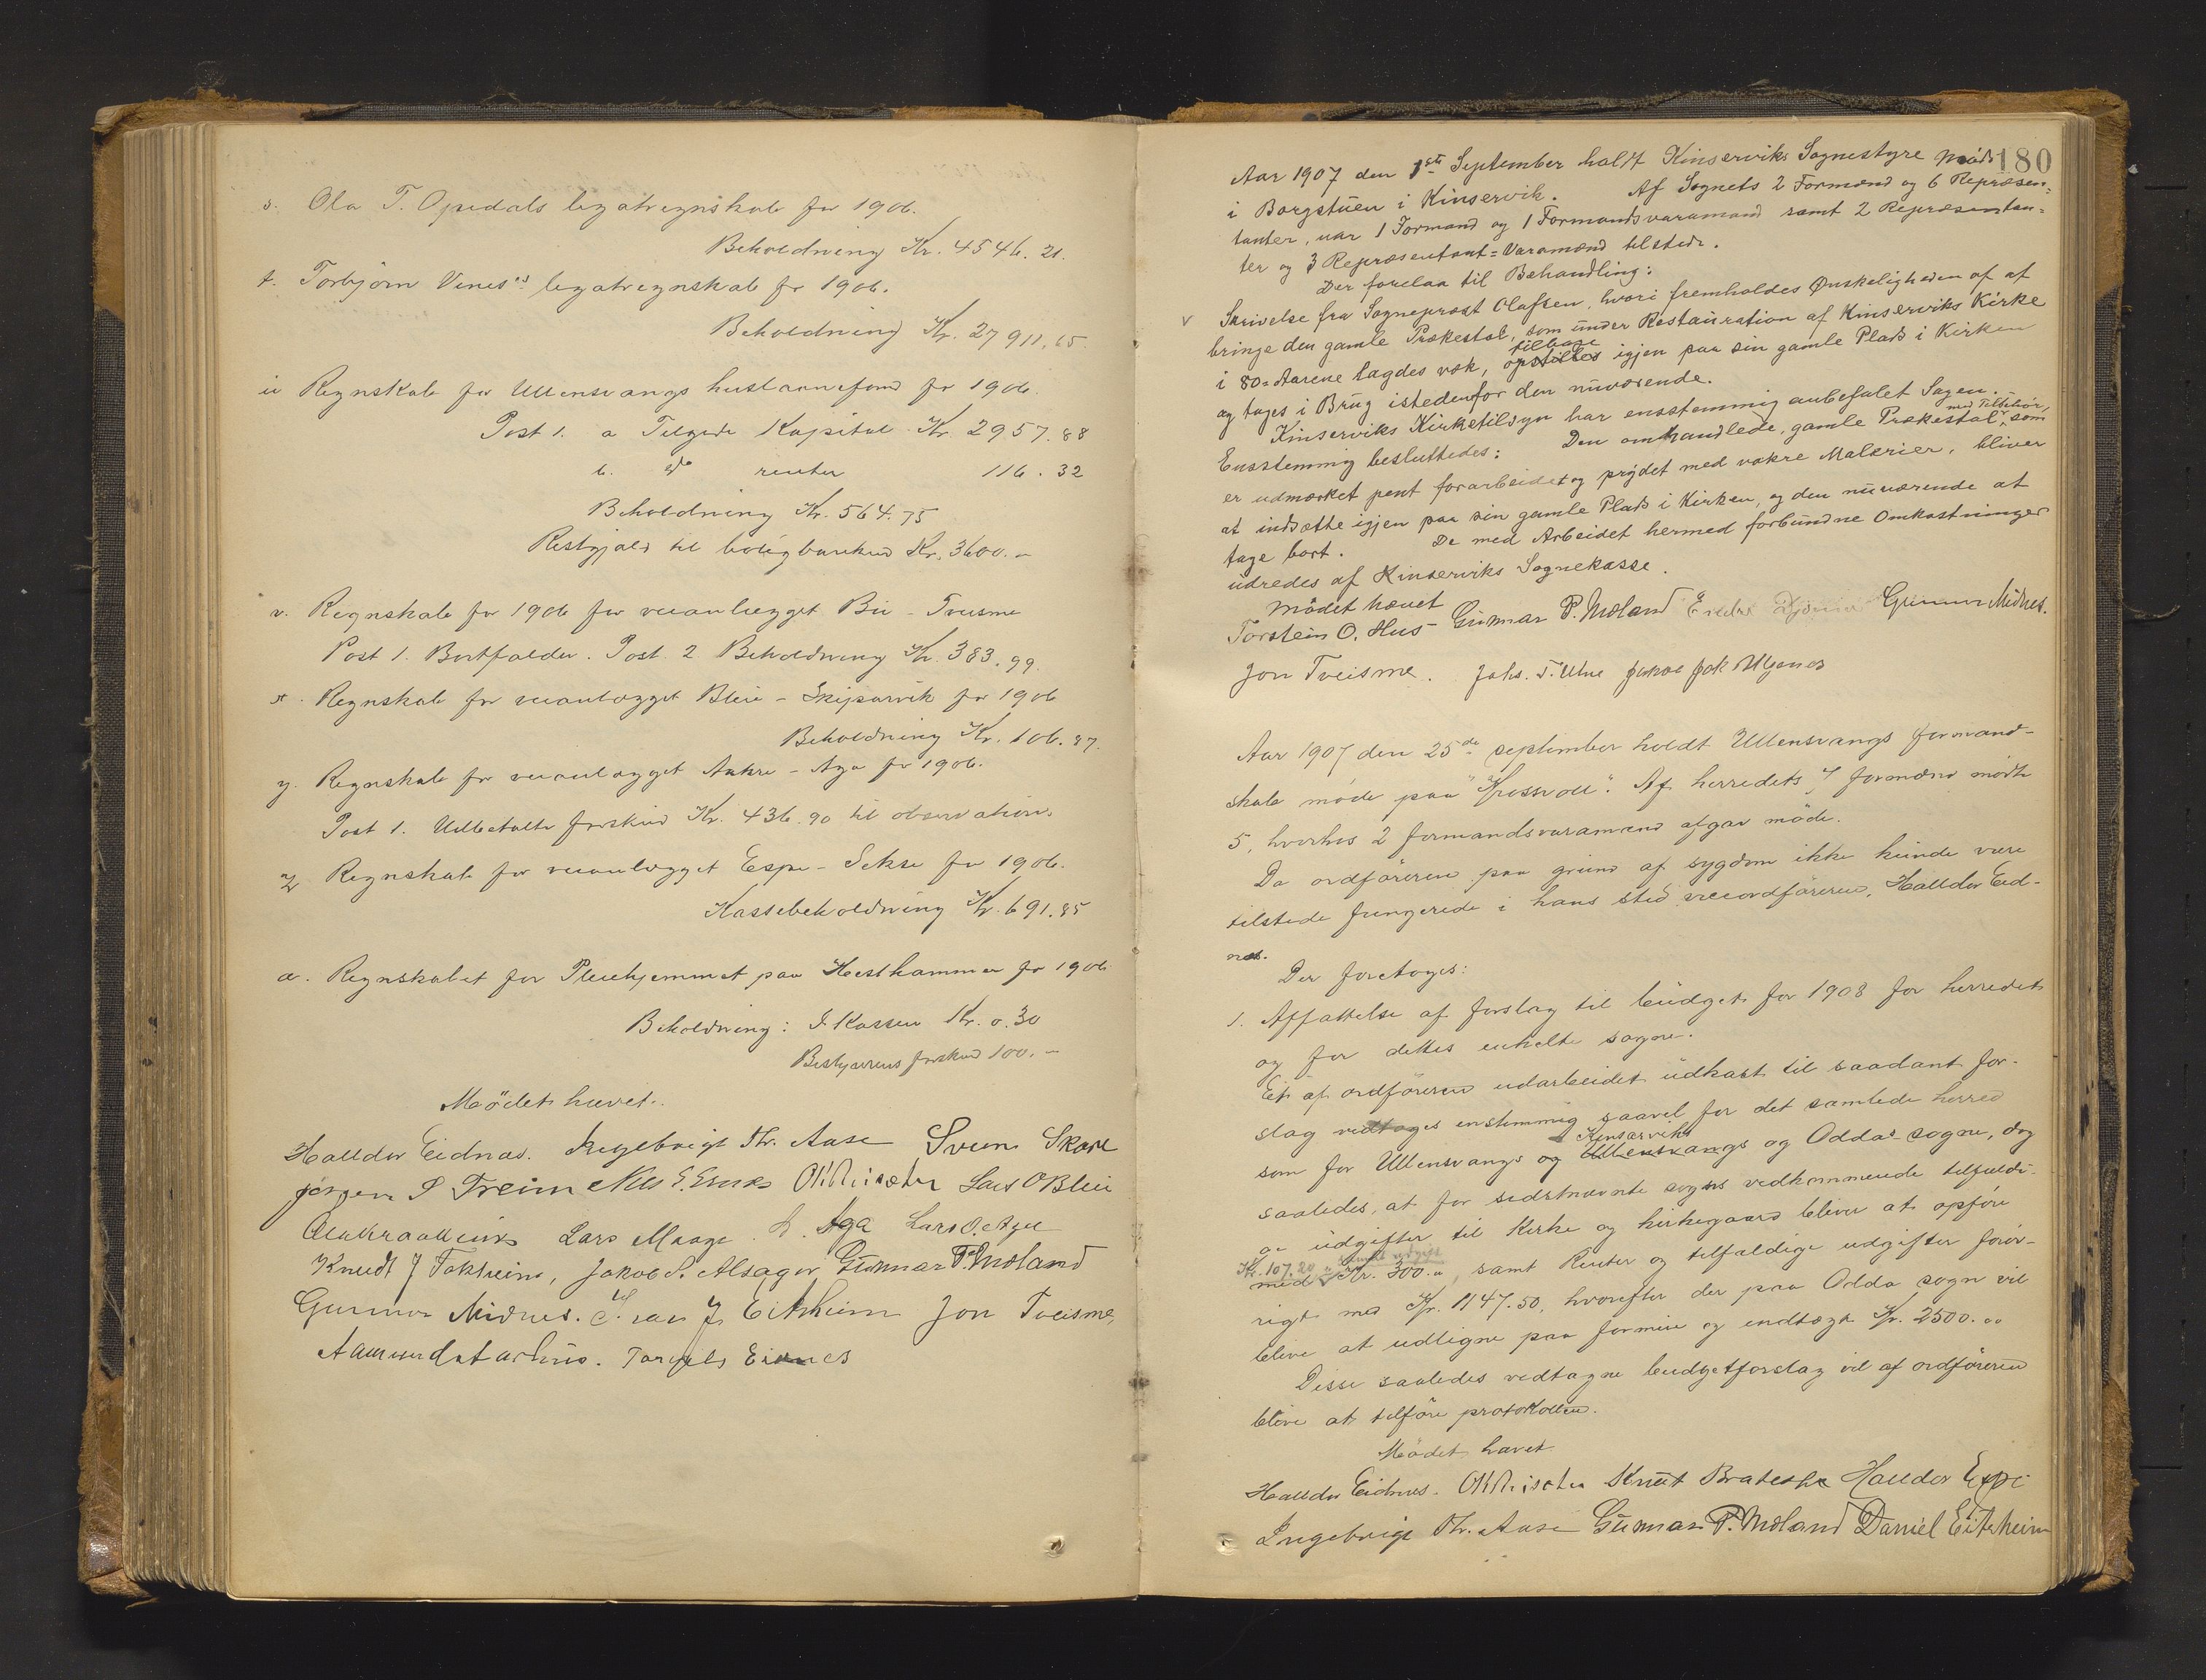 s. Ola T. Opedals legatregnskab for 1906.
Beholdning Kr. 4546.21.
t. Torbjörn Vines's legatregnskab for 1906.
Beholdning Kr. 27 911,65.
u Regnskab for Ullensvangs huslaanefond for 1906.
Post 1. a Tilgode Kapital Kr. 2957.88
b. do renter 116.32
Beholdning Kr. 564.75
Restgjæld til boligbanken Kr. 3600.-
v. Regnskab for 1906 for veianlægget Bu - Tveisme
Post 1. Bortfalder. Post 2 Beholdning Kr. 383.99.
x. Regnskab for veianlægget Bleie - Skiparvik for 1906
Beholdning Kr. 106.87.
y. Regnskab for veianlægget Aakre - Aga for 1906.
Post 1. Udbetalte forskud Kr. 436.90 til observation.
z Regnskab for veianlægget Espe - Sekse for 1906.
Kassebeholdning Kr. 691.85
æ. Regnskabet for Pleiehjemmet paa Hesthammer for 1906
Beholdning: I Kassen Kr. 0.30
Bestyrerens forskud 100.-
Mødet hævet.
Halldor Eidnæs. Ingebrigt Th. Aase Svein Skare
Jørgen P Freim Nils E. Lars O Bleie
Lars Maage. Aga Lars O. Aga
Knudt J Tokheim, Jakob S. Alsager Gunnar P. Moland
Gunnar Midnes. Ivar J. Eitrheim Jon Tveisme,
Aamund Aarhus. Torgils Eidnes
180
Aar 1907 den 1ste September holdt Kinserviks Sognestyre Møde
i Borgstuen i Kinservik. Af Sognets 2 Formænd og 6 Repræsen=
tanter, var 1 Formand og 1 Formandsvaramand samt 2 Repræsentan=
ter og 3 Repræsentant=Varamænd tilstede.
Der forelaa til Behandling:
v Skrivelse fra Sogneprest Olafsen, hvori fremholdes Ønskeligheden af at
bringe den gamle Prækestol, som under Restauration af Kinserviks Kirke
tilbage
i 80=Aarene lagdes væk, opstilles igjen paa sin gamle Plads i Kirken
og tages i Brug istedenfor den nuværende.
Kinserviks Kirketilsyn har ensstemmig anbefalet Sagen.
med Tilbehør,
Ensstemmig besluttedes: Den omhandlede, gamle Prækestol, som
er udmærket pent forarbeidet og prydet med vakre Malerier, bliver
at indsætte igjen paa sin gamle Plads i Kirken, og den nuværende at
tage bort. De med Arbeidet hermed forbundne Omkostninger
udredes af Kinserviks Sognekasse.
Mødet hævet
Torstein O. Hus Gunnar P. Moland Gunnar Midnes.
Jon Tveisme. Johs. T. Utne Jakob Jak
Aar 1907 den 25de september holdt Ullensvangs formand-
skab møde paa "Krossvoll". Af herredets 7 formænd mødte
5, hvorhos 2 formandsvaramænd afgav møde.
Da ordføreren paa grund af sygdom ikke kunde være
tilstede fungerede i hans sted viceordføreren, Halldor Eid-
næs.
Der foretoges:
1. Affattelse af forslag til budget for 1908 for herredet
og for dettes enkelte sogne.
Et af ordføreren udarbeidet udkast til saadant for-
slag vedtoges enstemmig saavel for det samlede herred
Kinserviks
som for Ullensvangs og Ullensvangs og Oddas sogne, dog
saaledes, at for sidstnævnte sogns vedkommende tilfældi-
ge udgifter til Kirke og kirkegaard bliver at opføre
Kr. 107.20 samt udgift
med Kr. 300.", samt Renter og tilfældige udgifter forøv-
rigt med Kr. 1147.50, hvorefter der paa Odda sogn vil
blive at udligne paa formue og indtægt Kr. 2500.00
Disse saaledes vedtagne budgetforslag vil af ordføreren
blive at tilføre protokollen.
Mødet hævet
Halldor Eidnæs. Knut Bratespe Halldor Espe
Ingebrigt Th. Aase Gunnar P. Moland Daniel Eitrheim